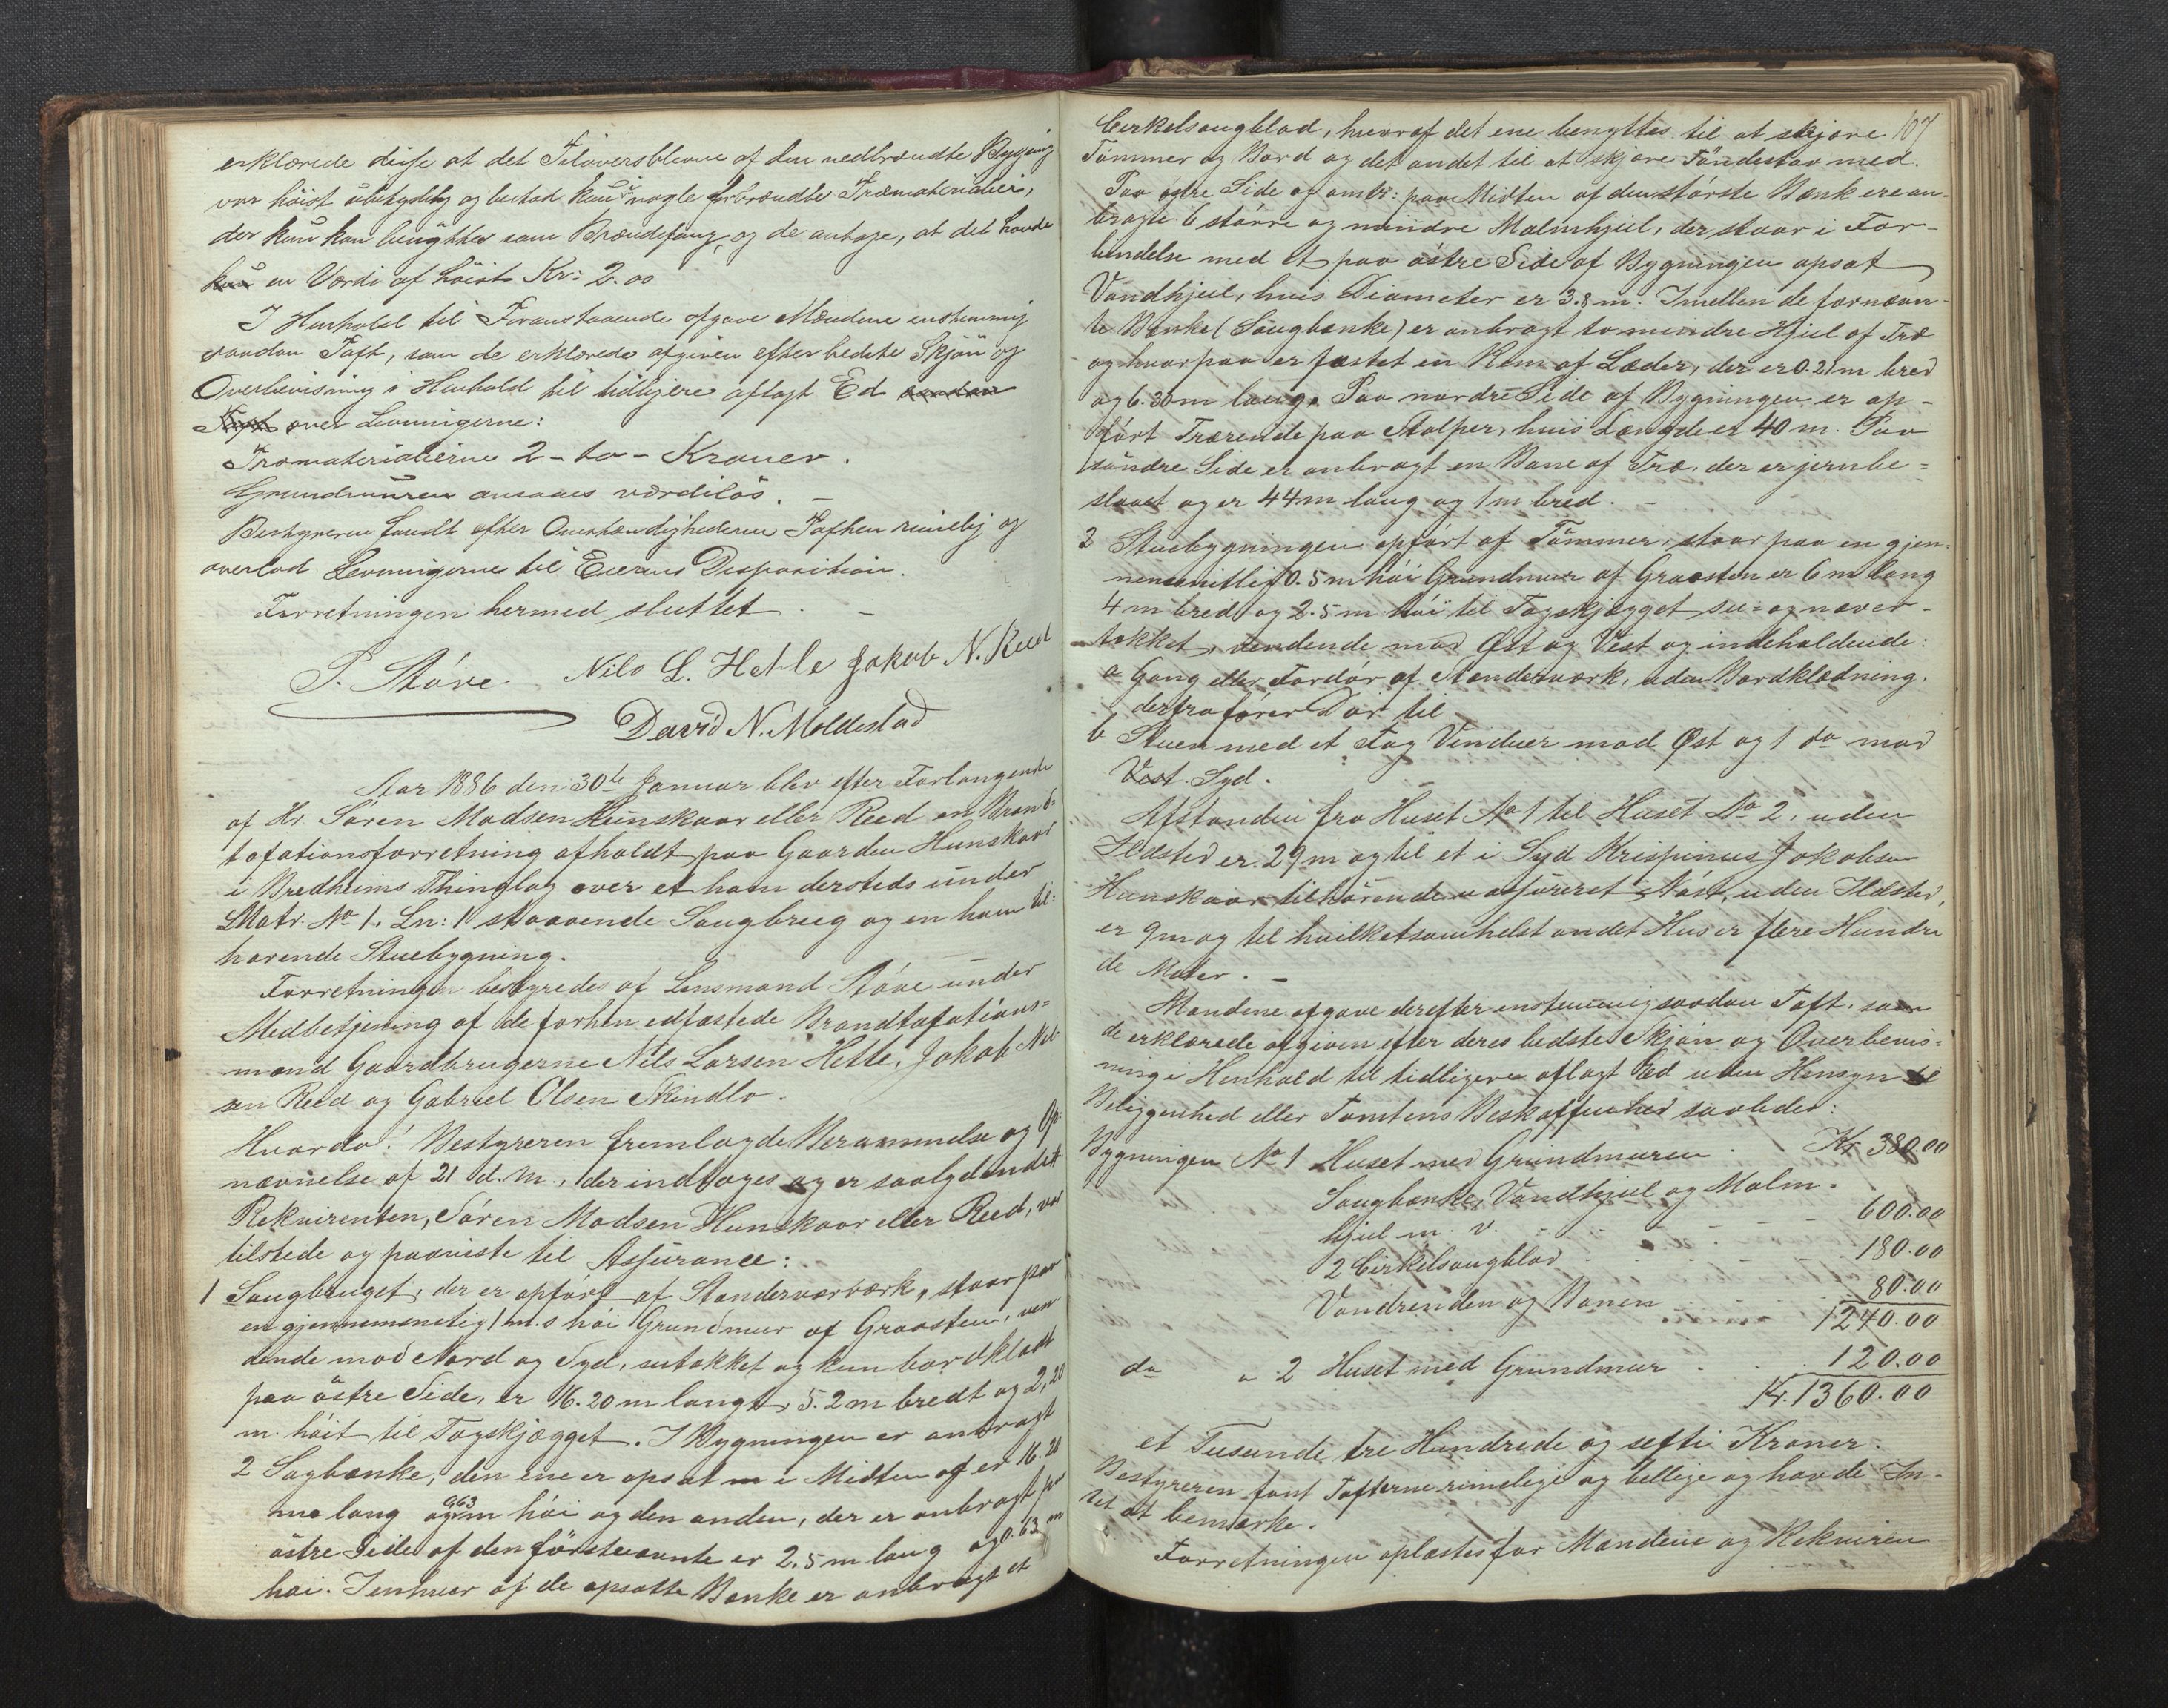 erklærede disse at det Tiloversblevne af den nedbrændte Bygning
var höist ubetydelig og bestod kun i nogle forbrændte Træmaterialier,
der kun kan benyttes som Brændefang, og de antage, at det havde
kun en Værdi af höist Kr: 2.00
I Henhold til Foranstaaende afgave Mændene enstemmig
saadan Taxt, som de erklærede afgiven efter bedste Skjön og
Overbevisning i Henhold til tidligere aflagt Ed saadan
Taxt over Levningerne:
Træmaterialierne 2 - to - Kroner.
Grundmuren ansaaes værdilös. -
Bestyreren fandt efter Omstændighederne Taxten rimelig og
overlod Levningerne til Eierens Disposition.
Forretningen hermed sluttet. -
P. Støve. Nils L. Hetle Jakob N. Reed
David N. Moldestad
Aar 1886 den 30te Januar blev efter Forlangende
af Hr. Sören Madsen Hunskaar eller Reed en Brand-
taxationsforretning afholdt paa Gaarden Hunskaar
i Bredheims Thinglag over et ham dersteds under
Matr. No 1. Ln: 1 staaende Saugbrug og en ham til-
hørende Stuebygning.
Forretningen bestyredes af Lensmand Støve under
Medbetjening af de forhen edfæstede Brandtaxations=
mænd Gaardbrugerne Nils Larsen Hetle, Jakob Nil-
sen Reed og Gabriel Olsen Skindlo.
Hvorda! Bestyreren fremlagde Berammelse og Op-
nævnelse af 21 d. M., der indtages og er saalydende
Rekvirenten, Sören Madsen Hunskaar eller Reed, var
tilstede og paaviste til Assurance:
1 Saugbruget, der er opfört af Standerværk, staar paa
en gjennemsnitlig 1 m. höi Grundmur af Graasten, ven-
dende mod Nord og Syd, sutækket og kun bordklædt
paa östre Side, er 16.20 m langt, 5.2 m bredt og 2,20
m. höit til Tagskjægget. I Bygningen er anbragt
2 Sagbænke, den ene er opsat i Midten af er 16.20
m lang og 0.63 m höi og den anden, der er anbragt paa
östre Side af den förstnævnte er 2.5 m lang og 0.63 m
höi. I enhver af de opsatte Bænke er anbragt et
107
Cirkelsaugblad, hvoraf det ene benyttes til at skjære
Tömmer og Bord og det andet til at skjære Töndestav med.
Paa östre Side og omtr: paa Midten af den störste Bænk ere an-
bragte 6 större og mindre Malmhjul, der staar i For-
bindelse med et paa östre Side af Bygningen opsat
Vandhjul, hvis Diameter er 3.8 m. Imellem de fornævn-
te Bænke (Saugbænke) er anbragt to mindre Hjul af Træ
og hvorpaa er fæstet en Rem af Læder, der er 0.21 m bred
og 6.30 m lang. Paa nordre Side af Bygningen er op-
fört Trærende paa Stolper, hvis Længde er 40 m. Paa
söndre Side er anbragt en Bane af Træ, der er jernbe=
slaaet og er 44 m lang og 1 m bred. -
2 Stuebygningen opfört af Tömmer, staar paa en gjen-
nemsnitlig 0.5 m höi Grundmur af Graasten er 6 m lang
4 m bred og 2.5 m höi til Tagskjægget su- og næver-
tækket, vendende mod Øst og Vest og indeholdende:
a Gang eller Fordör af Standerværk, uden Bordklædning.
derfra förer Dör til
b Stuen med et Fag Vinduer mod Øst og 1 do mod
Vest. Syd.
Afstanden fra Huset No 1 til Huset No 2, uden
Ildsted er 29 m og til et i Syd Krispinus Jakobsen
Hunskaar tilhörende uassureret Nöst, uden Ildsted,
er 9 m og til hvilketsomhelst andet Hus er flere Hundre
de Meter. -
Mændene afgave derefter enstemmig saadan Taxt, som
de erklærede afgiven efter deres bedste Skjön og Overbevis=
ning i Henhold til tidligere aflagt Ed uden Hensyn til
Beliggenhed eller Tomtens Beskaffenhed saaledes:
Bygningen No 1 Huset med Grundmuren . Kr 380.00
Saugbænke, Vandhjul og Malm-
hjul m. v. - - - - 600.00
2 Cirkelsaugblad . . . 180.00
Vandrenden og Banen . . 80.00
1240.00
do " 2 Huset med Grundmur . . 120.00
Kr. 1360.00
et Tusende tre Hundrede og sexti Kroner.
Bestyreren fant Taxterne rimelige og billige og havde In-
tet at bemærke.
Forretningen oplæstes for Mændene og Rekviren